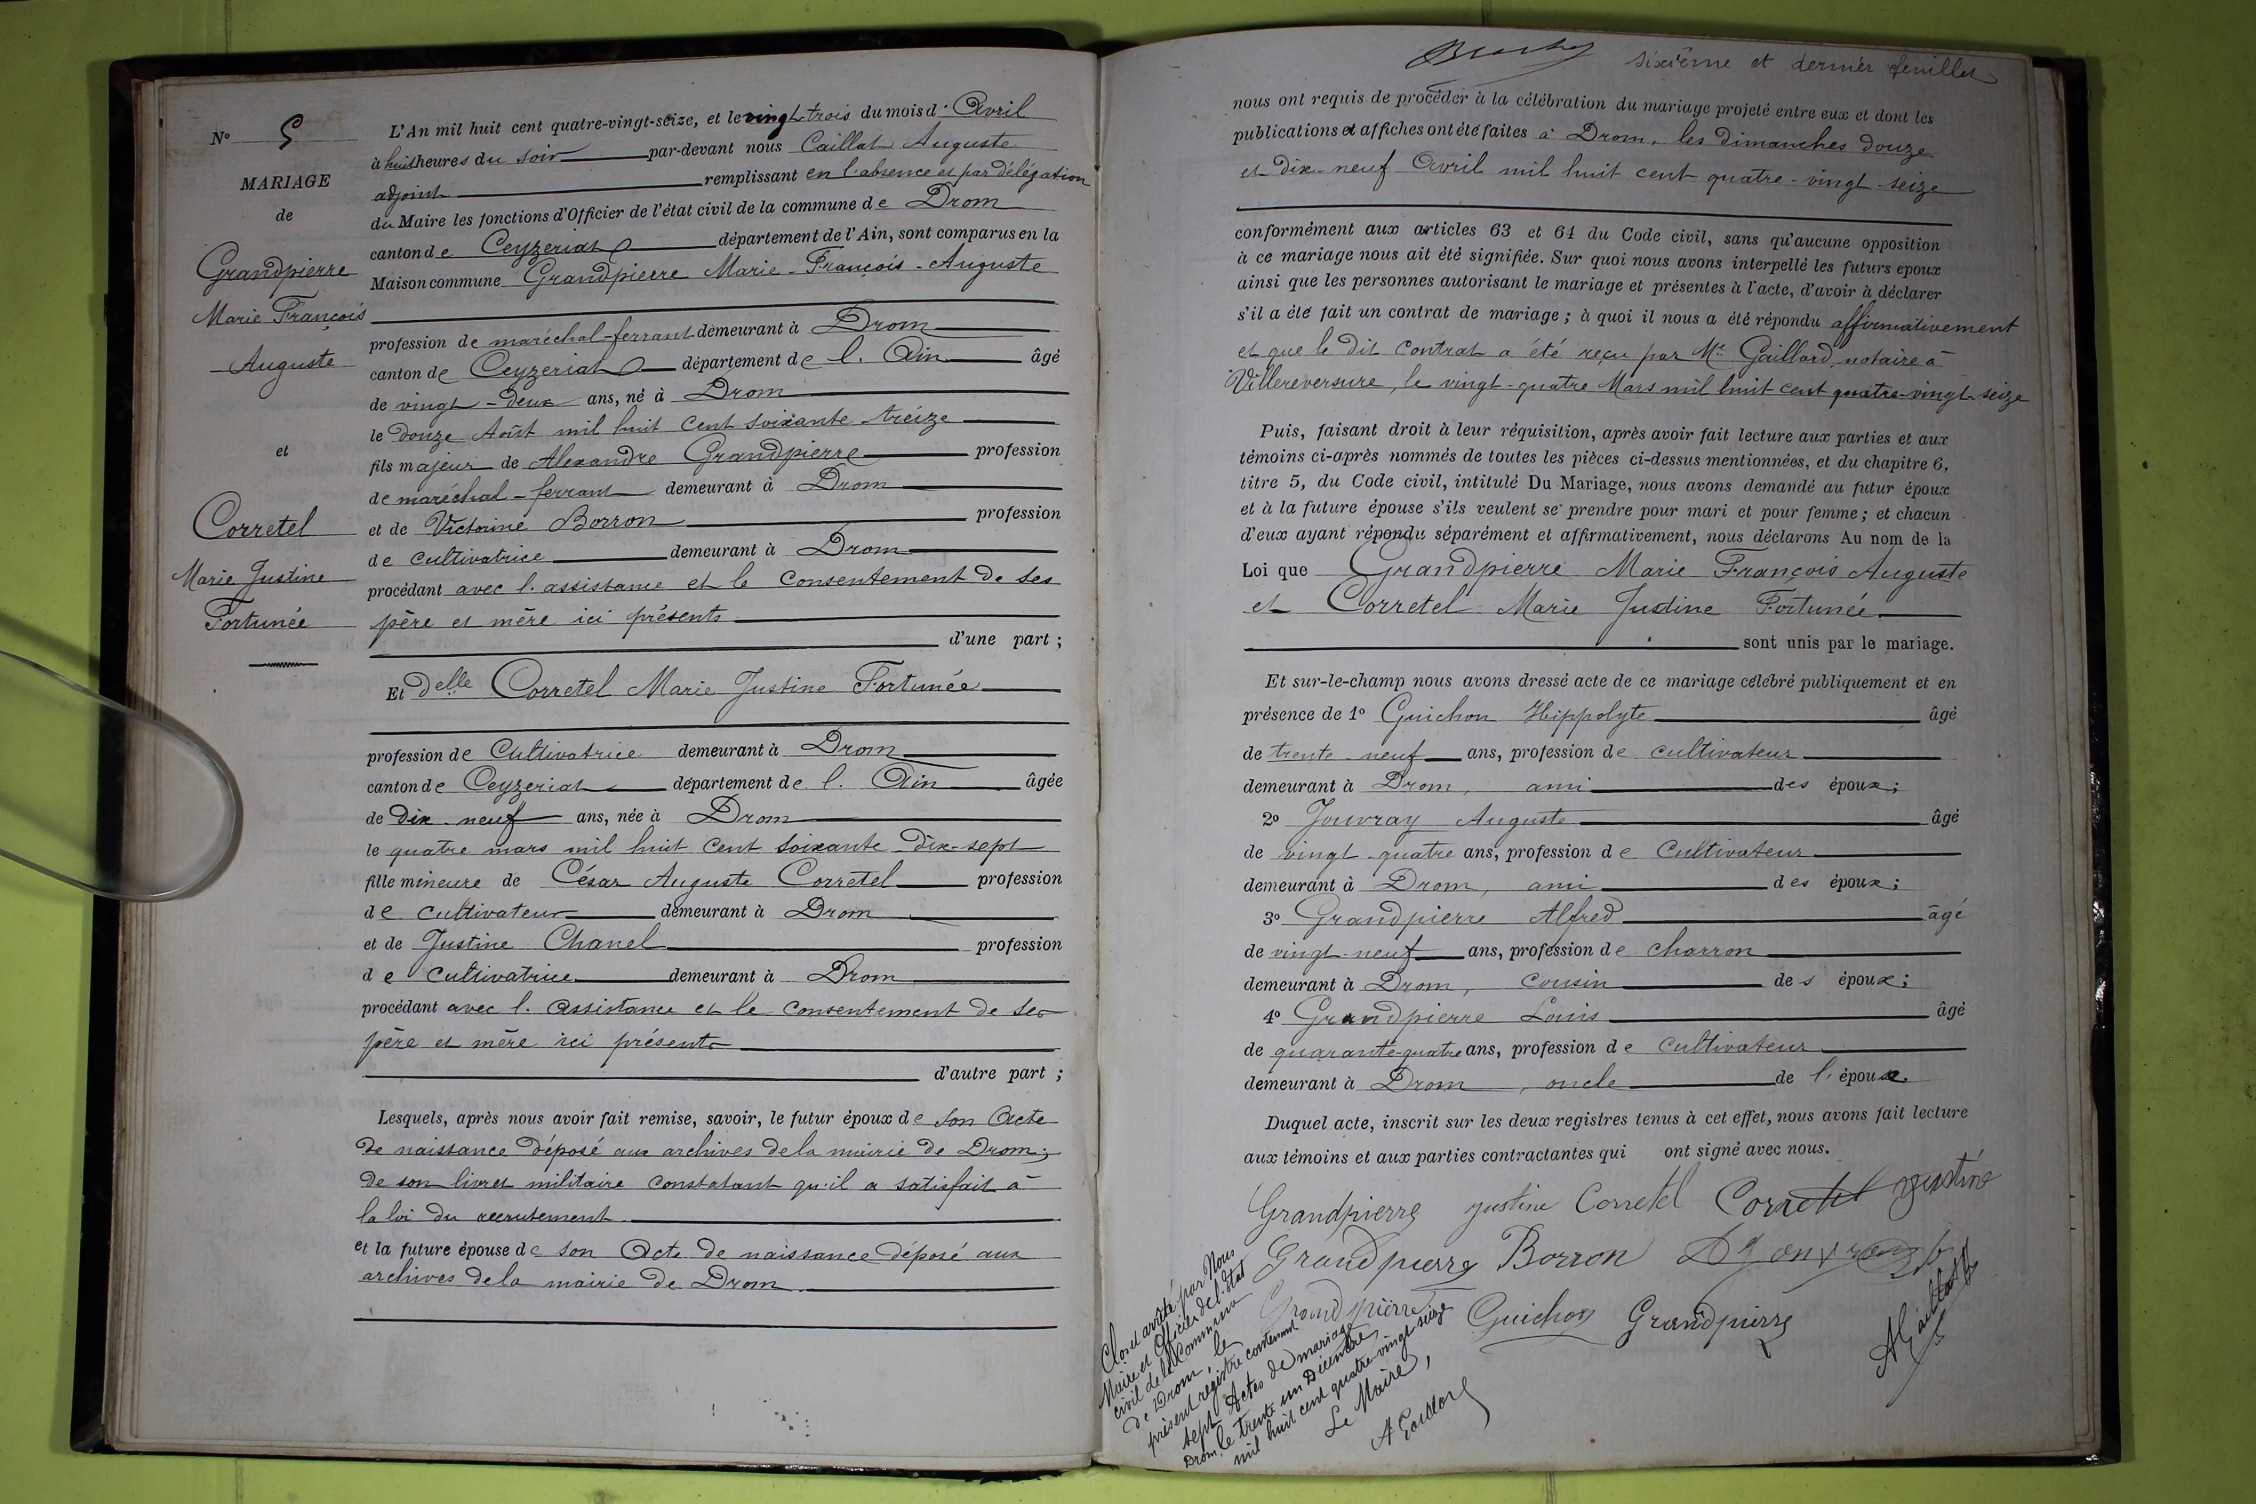 N° 5
MARIAGE
de
Grandpierre
Marie François
Auguste
et
Corretel
Marie Justine
Fortunée
L'An mil huit cent quatre-vingt-seize, et le vingt-trois du mois d'Avril
à huit heures du soir par-devant nous Caillat Auguste
adjoint remplissant en l'absence et par délégation
du Maire les fonctions d'Officier de l'état civil de la commune de Drom
canton de Ceyzeriat département de l'Ain, sont comparus en la
Maison commune Grandpierre Marie-François-Auguste
profession de maréchal-ferrant demeurant à Drom
canton de Ceyzeriat département de l'Ain âgé
de vingt-deux ans, né à Drom
le douze Août mil huit cent soixante-treize
fils majeur de Alexandre Grandpierre profession
de maréchal-ferrant demeurant à Drom
et de Victorine Borron profession
de cultivatrice demeurant à Drom
procédant avec l'assistance et le consentement de ses
père et mère ici présents
d'une part ;
Et Delle Corretel Marie Justine Fortunée
profession de Cultivatrice demeurant à Drom
canton de Ceyzeriat département de l'Ain âgée
de Dix-neuf ans, née à Drom
le quatre mars mil huit cent soixante Dix-sept
fille mineure de César Auguste Corretel profession
de cultivateur demeurant à Drom
et de Justine Chanel profession
de cultivatrice demeurant à Drom
procédant avec l'assistance et le consentement de ses
père et mère ici présents
d'autre part ;
Lesquels, après nous avoir fait remise, savoir, le futur époux de son Acte
de naissance déposé aux archives de la mairie de Drom;
de son livret militaire constatant qu'il a satisfait à
la loi du recrutement.
et la future épouse de son Acte de naissance déposé aux
archives de la mairie de Drom
sixième et dernier feuillet
nous ont requis de procéder à la célébration du mariage projeté entre eux et dont les
publications et affiches ont été faites à Drom, les dimanches douze
et dix-neuf Avril mil huit cent quatre-vingt-seize
conformément aux articles 63 et 64 du Code civil, sans qu'aucune opposition
à ce mariage nous ait été signifiée. Sur quoi nous avons interpellé les futurs epoux
ainsi que les personnes autorisant le mariage et présentes à l'acte, d'avoir à déclarer
s'il a été fait un contrat de mariage ; à quoi il nous a été répondu affirmativement
et que le dit contrat a été reçu par Me Gaillard, notaire à
Villereversure, le vingt-quatre Mars mil huit cent quatre-vingt-seize
Puis, faisant droit à leur réquisition, après avoir fait lecture aux parties et aux
témoins ci-après nommés de toutes les pièces ci-dessus mentionnées, et du chapitre 6,
titre 5, du Code civil, intitulé Du Mariage, nous avons demandé au futur époux
et à la future épouse s'ils veulent se prendre pour mari et pour femme ; et chacun
d'eux ayant répondu séparément et affirmativement, nous déclarons Au nom de la
Loi que Grandpierre Marie François Auguste
et Corretel Marie Justine Fortunée
sont unis par le mariage.
Et sur-le-champ nous avons dressé acte de ce mariage célébré publiquement et en
présence de 1° Guichon Hippolyte âgé
de trente-neuf ans, profession de cultivateur
demeurant à Drom, ami des époux ;
2° Jouvray Auguste âgé
de vingt-quatre ans, profession de Cultivateur
demeurant à Drom, ami des époux ;
3° Grandpierre Alfred âgé
de vingt-neuf ans, profession de charron
demeurant à Drom, cousin des époux ;
4° Grandpierre Louis âgé
de quarante-quatre ans, profession de Cultivateur
demeurant à Drom, oncle de l'époux.
Duquel acte, inscrit sur les deux registres tenus à cet effet, nous avons fait lecture
aux témoins et aux parties contractantes qui ont signé avec nous.
Grandpierre justine Corretel Corretel Justine
Grandpierre Borron
Grandpierre Guichon Grandpierre
A Caillat
Clos et arrêté par Nous
Maire et Officier de l'état
civil de la Commune
de Drom, le
présent registre contenant
sept Actes de mariage
Drom, le trente un Décembre
mil huit cent quatre vingt seize
Le Maire,